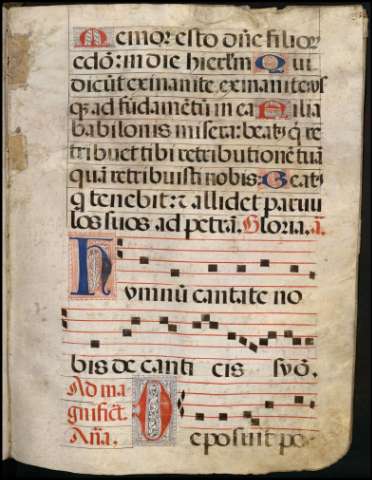 Memor esto dñe filioꝝ
edō: in die hierłm Qui
dicūt exinanite exinanite usꝗ
qꝫ ad fūdamētū in ea Filia
babilonis misera: beatꝰ q̄ re
tribuet tibi retributionē tuā
quā retribuisti nobis: Beatꝰ
q̄ tenebit: ⁊ allidet paruu
los suos ad petrā. Gloria. ā.
Hymnū cantate no
bis de canti cis syō.
Ad ma
gnificāt.
Aña.
Deposuit po